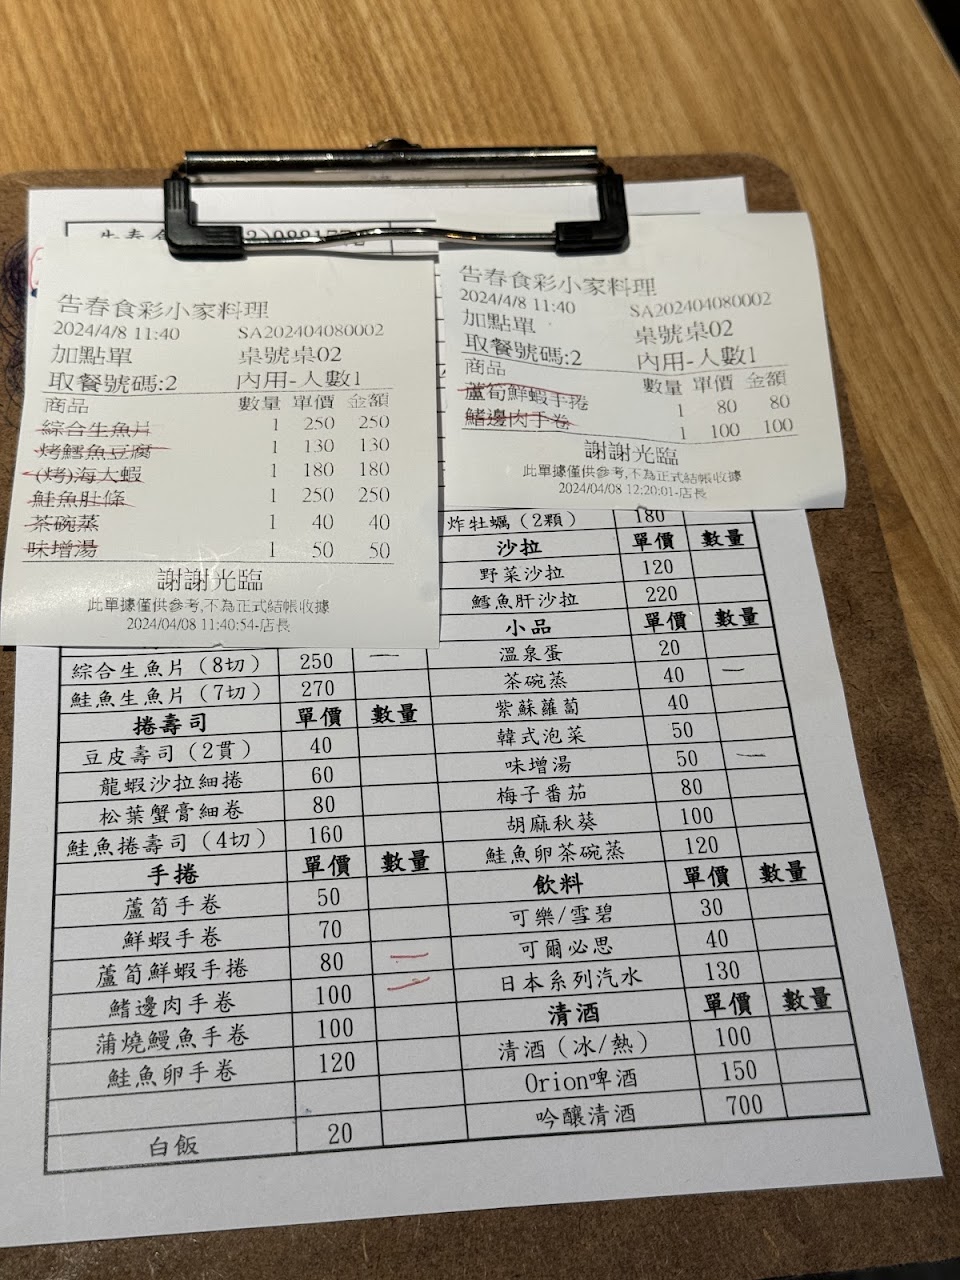 告春食彩小家料理
2024/4/8 11:40 SA202404080002
加點單 桌號桌02
取餐號碼:2 內用-人數1
商品 數量 單價 金額
綜合生魚片 1 250 250
烤鱈魚豆腐 1 130 130
(烤)海大蝦 1 180 180
鮭魚肚條 1 250 250
茶碗蒸 1 40 40
味增湯 1 50 50
謝謝光臨
此單據僅供參考,不為正式結帳收據
2024/04/08 11:40:54-店長
告春食彩小家料理
2024/4/8 11:40 SA202404080002
加點單 桌號桌02
取餐號碼:2 內用-人數1
商品 數量 單價 金額
蘆筍鮮蝦手捲 1 80 80
鰭邊肉手卷 1 100 100
謝謝光臨
此單據僅供參考,不為正式結帳收據
2024/04/08 12:20:01-店長
綜合生魚片（8切） 250 一
鮭魚生魚片（7切） 270
捲壽司 單價 數量
豆皮壽司（2貫） 40
龍蝦沙拉細捲 60
松葉蟹膏細卷 80
鮭魚捲壽司（4切） 160
手捲 單價 數量
蘆筍手卷 50
鮮蝦手卷 70
蘆筍鮮蝦手捲 80 一
鰭邊肉手卷 100 一
蒲燒鰻魚手卷 100
鮭魚卵手卷 120
白飯 20
炸牡蠣（2顆） 180
沙拉 單價 數量
野菜沙拉 120
鱈魚肝沙拉 220
小品 單價 數量
溫泉蛋 20
茶碗蒸 40 一
紫蘇蘿蔔 40
韓式泡菜 50
味增湯 50 一
梅子番茄 80
胡麻秋葵 100
鮭魚卵茶碗蒸 120
飲料 單價 數量
可樂/雪碧 30
可爾必思 40
日本系列汽水 130
清酒 單價 數量
清酒（冰/熱） 100
Orion啤酒 150
吟釀清酒 700